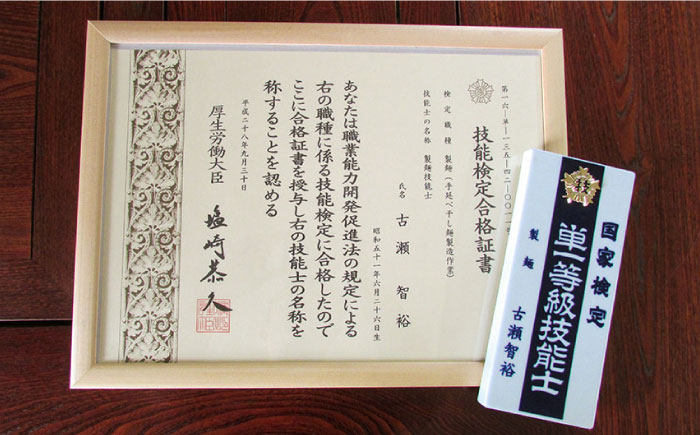 第一六-単-一三五-四二-〇〇一
技能検定合格証書
検定職種 製麺(手延べ干し麺製造作業)
技能士の名称 製麺技能士
氏名 古瀬智裕
昭和五十一年六月二十六日生
あなたは職業能力開発促進法の規定による
右の職種に係る技能検定に合格したので
ここに合格証書を授与し右の技能士の名称を
称することを認める
平成二十八年九月三十日
厚生労働大臣 塩崎恭久
技
国家検定
単一等級技能士
製麺 古瀬智裕